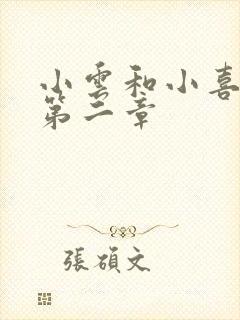 小雲和小喜
第二章
張碩文